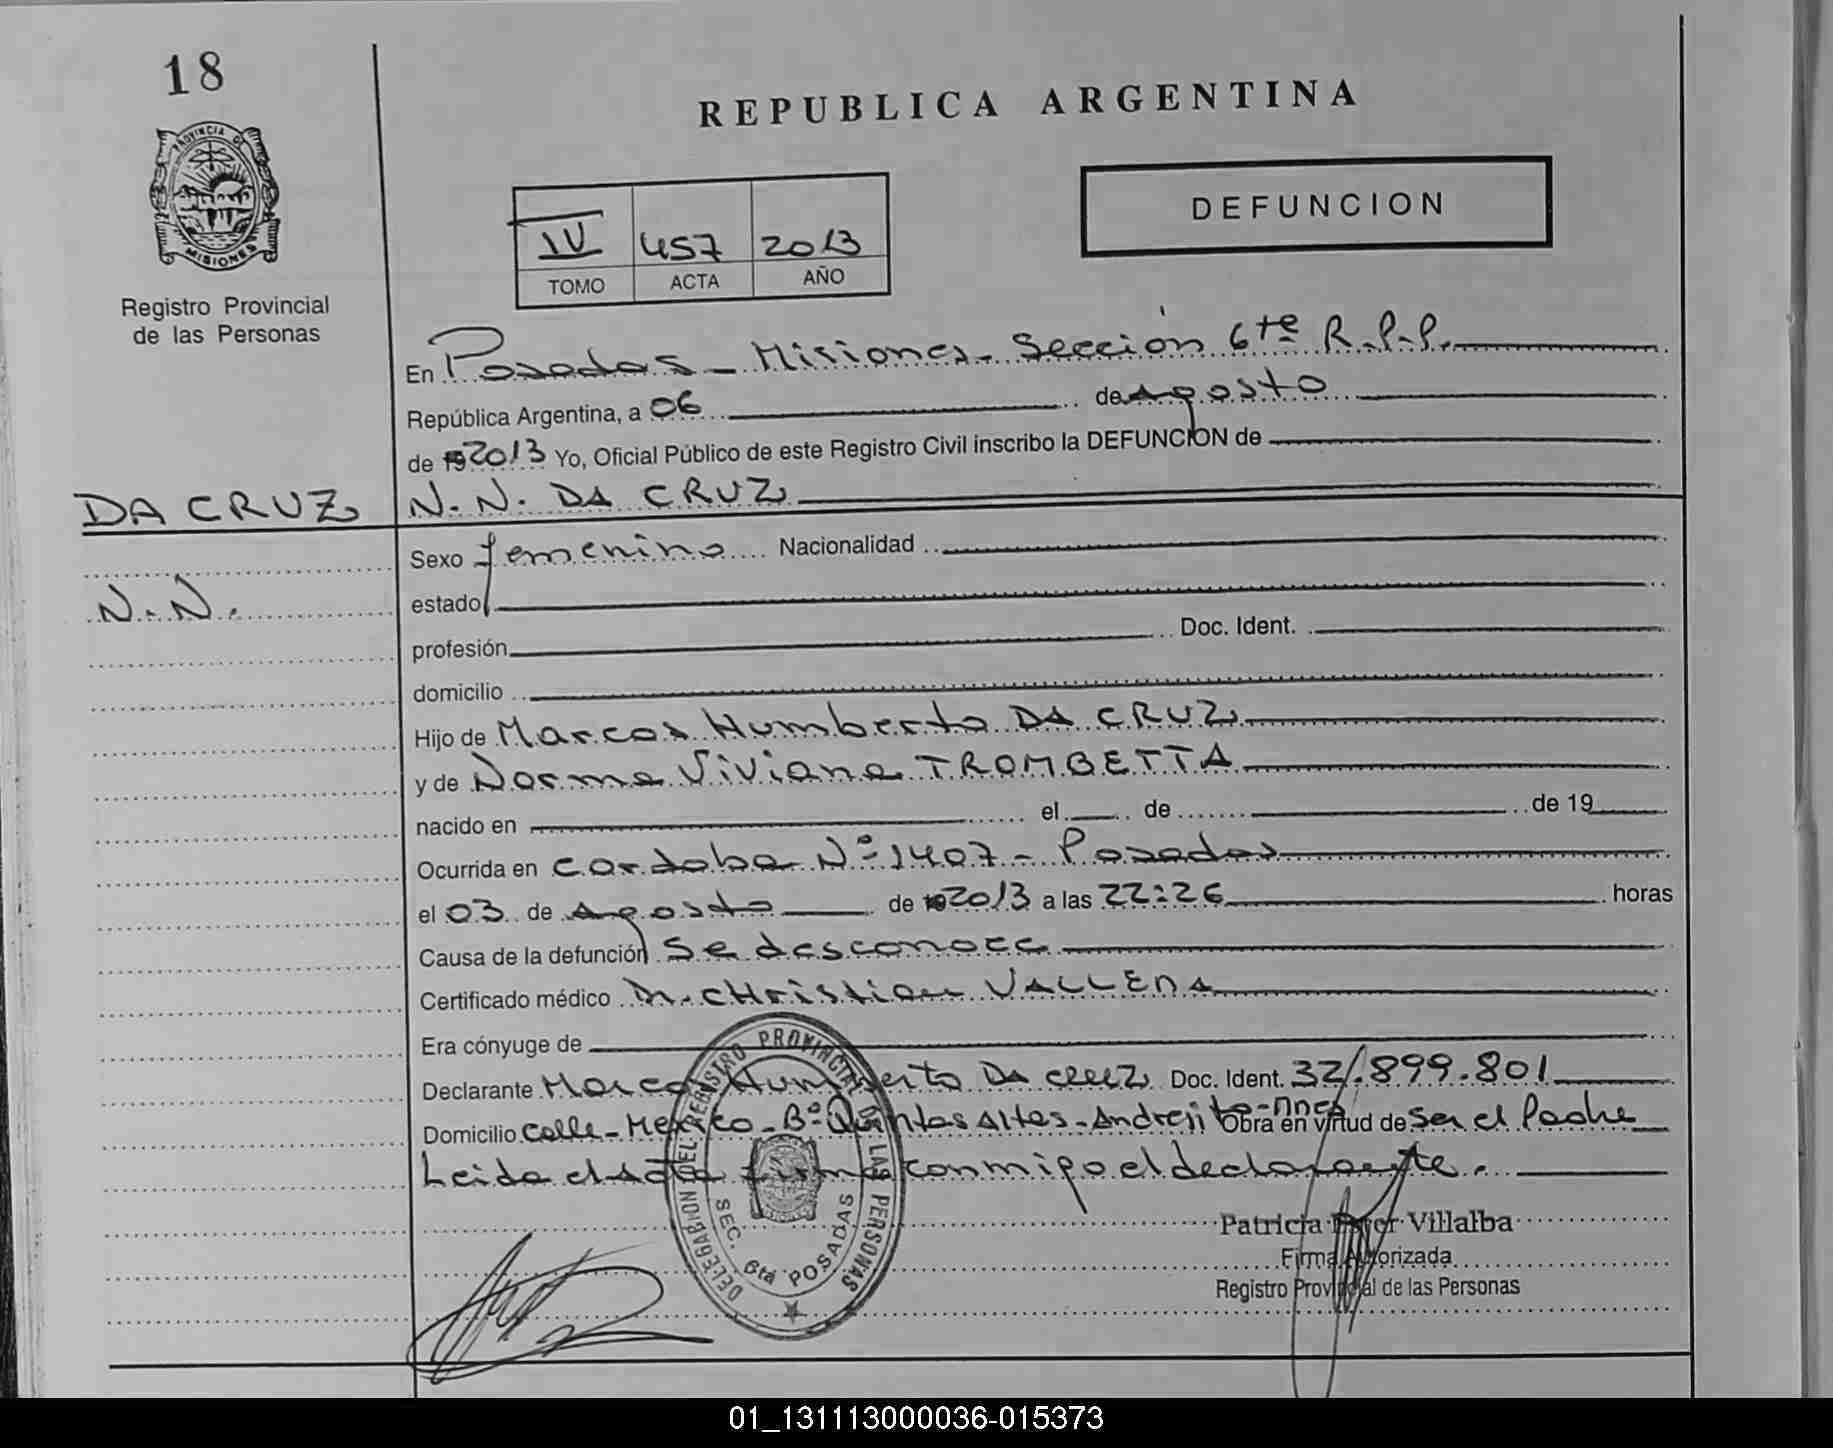 18
REPUBLICA ARGENTINA
PROVINCIA DE
MISIONES
DEFUNCION
IV 457 2013
TOMO ACTA AÑO
Registro Provincial
de las Personas
En Posadas - Misiones - Sección 6ta R.P.P.
República Argentina, a 06 de Agosto
de 19 2013 Yo, Oficial Público de este Registro Civil inscribo la DEFUNCION de
DA CRUZ N. N. DA CRUZ
Sexo femenino Nacionalidad
N. N.
estado
profesión Doc. Ident.
domicilio
Hijo de Marcos Humberto DA CRUZ
y de Norma Viviana TROMBETTA
nacido en el de de 19
Ocurrida en Cordoba Nº 1407 - Posadas
el 03 de Agosto de 19 2013 a las 22:26 horas
Causa de la defunción Se desconoce
Certificado médico Dr. CHristian VALLENA
Era cónyuge de
Declarante Marcos Humberto DA CRUZ Doc. Ident. 32.899.801
Domicilio calle - Mexico - Bº Quintas Altas - Andresito - Mnes Obra en virtud de ser el Padre
Leida el Acta firma conmigo el declarante.
DELEGACION DEL REGISTRO PROVINCIAL DE LAS PERSONAS
SEC. 6ta POSADAS
Patricia Villalba
Firma Autorizada
Registro Provincial de las Personas
01_131113000036-015373